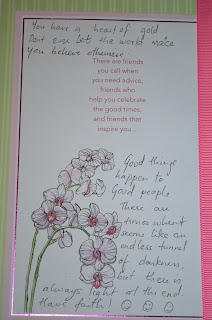 You have a heart of gold
Dont ever let the world make
you believe otherwise
There are friends
you call when
you need advice,
friends who
help you celebrate
the good times,
and friends that
inspire you...
Good things
happen to
Good people
There are
times when it
seems like an
endless tunnel
of darkness,
but there is
always light at the end
Have faith! ☺ ☺ ☺